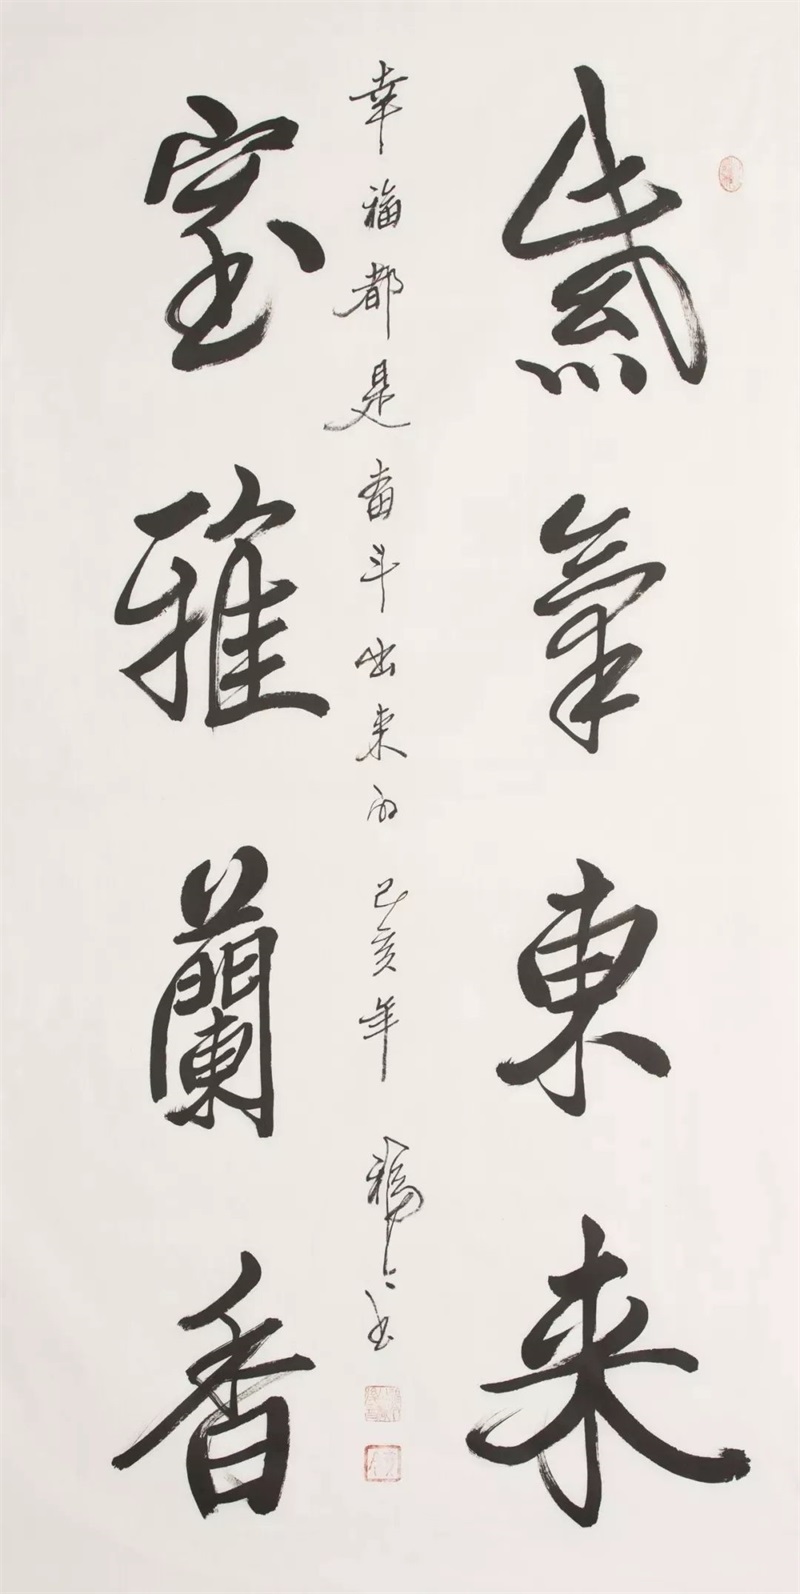 紫氣東来
幸福都是奋斗出来的 己亥年
室雅蘭香